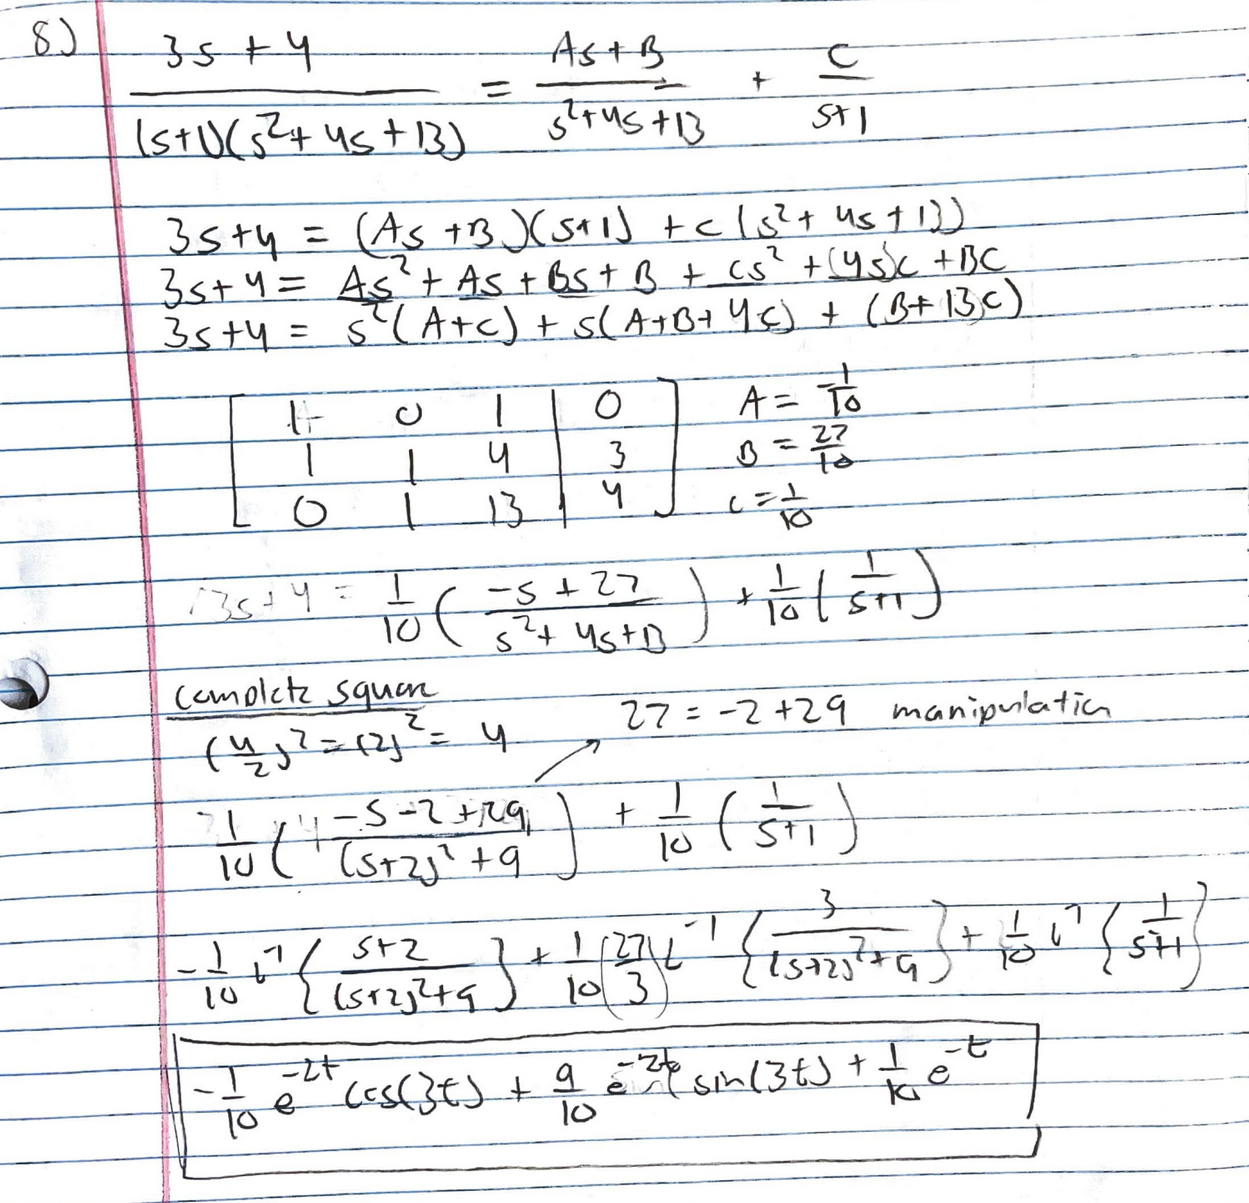 8) (3s+4)/((s+1)(s²+4s+13)) = (As+B)/(s²+4s+13) + C/(s+1)
3s+4 = (As+B)(s+1) + C(s²+4s+13)
3s+4 = As² + As + Bs + B + Cs² + (4s)C + 13C
3s+4 = s²(A+C) + s(A+B+4C) + (B+13)C)
[ 1 0 1 | 0 ] A = -1/10
[ 1 1 4 | 3 ] B = 27/10
[ 0 1 13 | 4 ] C = 1/10
3s+4 = 1/10 ((-s+27)/(s²+4s+13)) + 1/10 (1/(s+1))
complete square
(4/2)² = (2)² = 4
27 = -2+29 manipulation
1/10 ((-s-2+29)/((s+2)²+9)) + 1/10 (1/(s+1))
-1/10 L⁻¹{(s+2)/((s+2)²+9)} + 1/10(27/3) L⁻¹{3/((s+2)²+9)} + 1/10 L⁻¹{1/(s+1)}
-1/10 e^(-2t) cos(3t) + 9/10 e^(-2t) sin(3t) + 1/10 e^(-t)